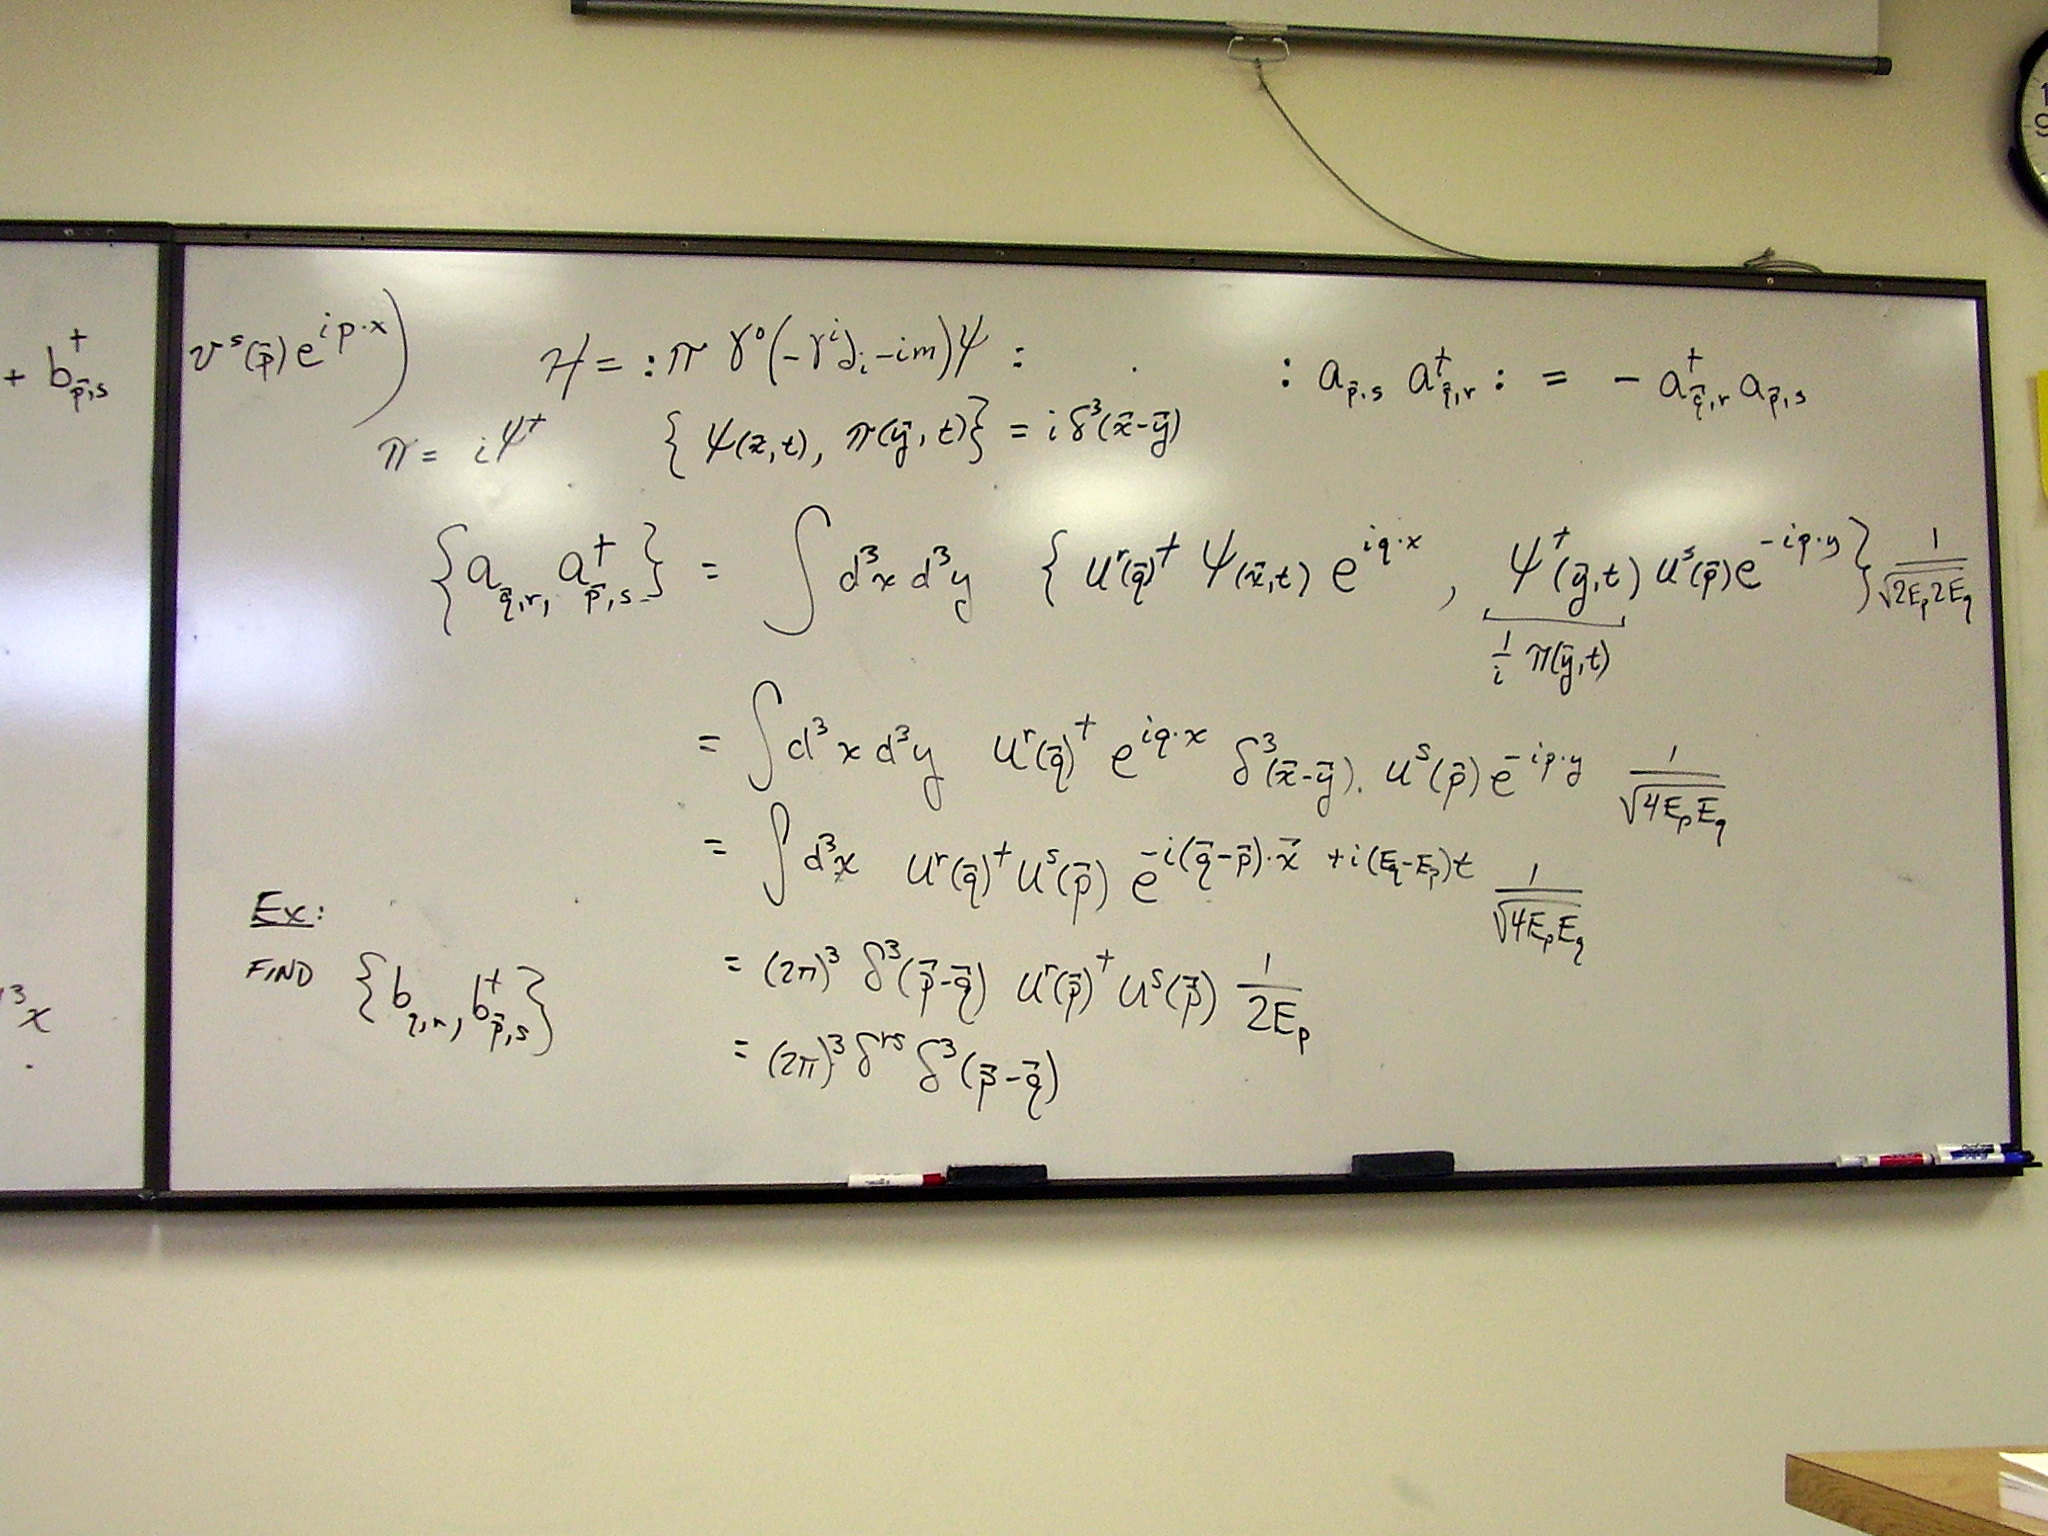 + b†_{p⃗,s} v^s(p⃗) e^{ip·x} )
H = : π γ⁰(-γ^i ∂_i - im)ψ :
: a_{p⃗,s} a†_{q⃗,r} : = - a†_{q⃗,r} a_{p⃗,s}
π = iψ† {ψ(x⃗,t), π(y⃗,t)} = i δ³(x⃗-y⃗)
{a_{q⃗,r}, a†_{p⃗,s}} = ∫ d³x d³y { u^r(q⃗)† ψ(x⃗,t) e^{iq·x}, ψ†(y⃗,t) u^s(p⃗) e^{-ip·y} } 1/√(2E_p 2E_q)
1/i π(y⃗,t)
= ∫ d³x d³y u^r(q⃗)† e^{iq·x} δ³(x⃗-y⃗). u^s(p⃗) e^{-ip·y} 1/√(4E_p E_q)
= ∫ d³x u^r(q⃗)† u^s(p⃗) e^{-i(q⃗-p⃗)·x⃗ +i(E_q-E_p)t} 1/√(4E_p E_q)
= (2π)³ δ³(p⃗-q⃗) u^r(p⃗)† u^s(p⃗) 1/2E_p
= (2π)³ δ^{rs} δ³(p⃗-q⃗)
Ex:
FIND {b_{q,r}, b†_{p⃗,s}}
³x